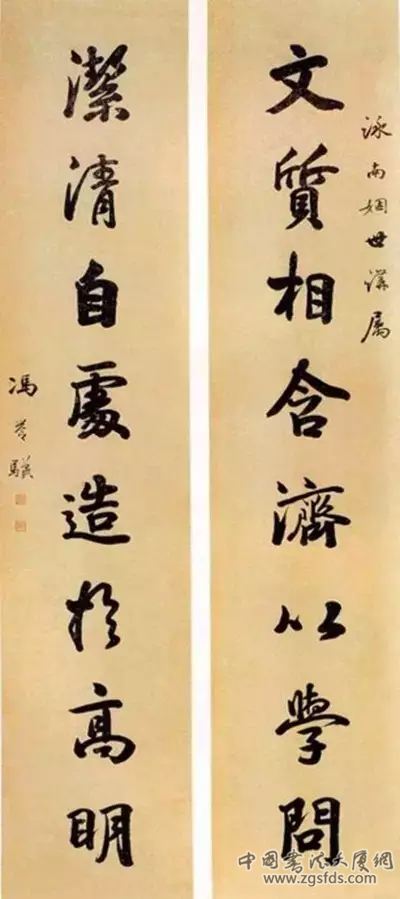 泳南姻世講屬
文質相含濟以學問
潔清自處造於高明
馮譽驥
中國書法大厦網
www.zgsfds.com